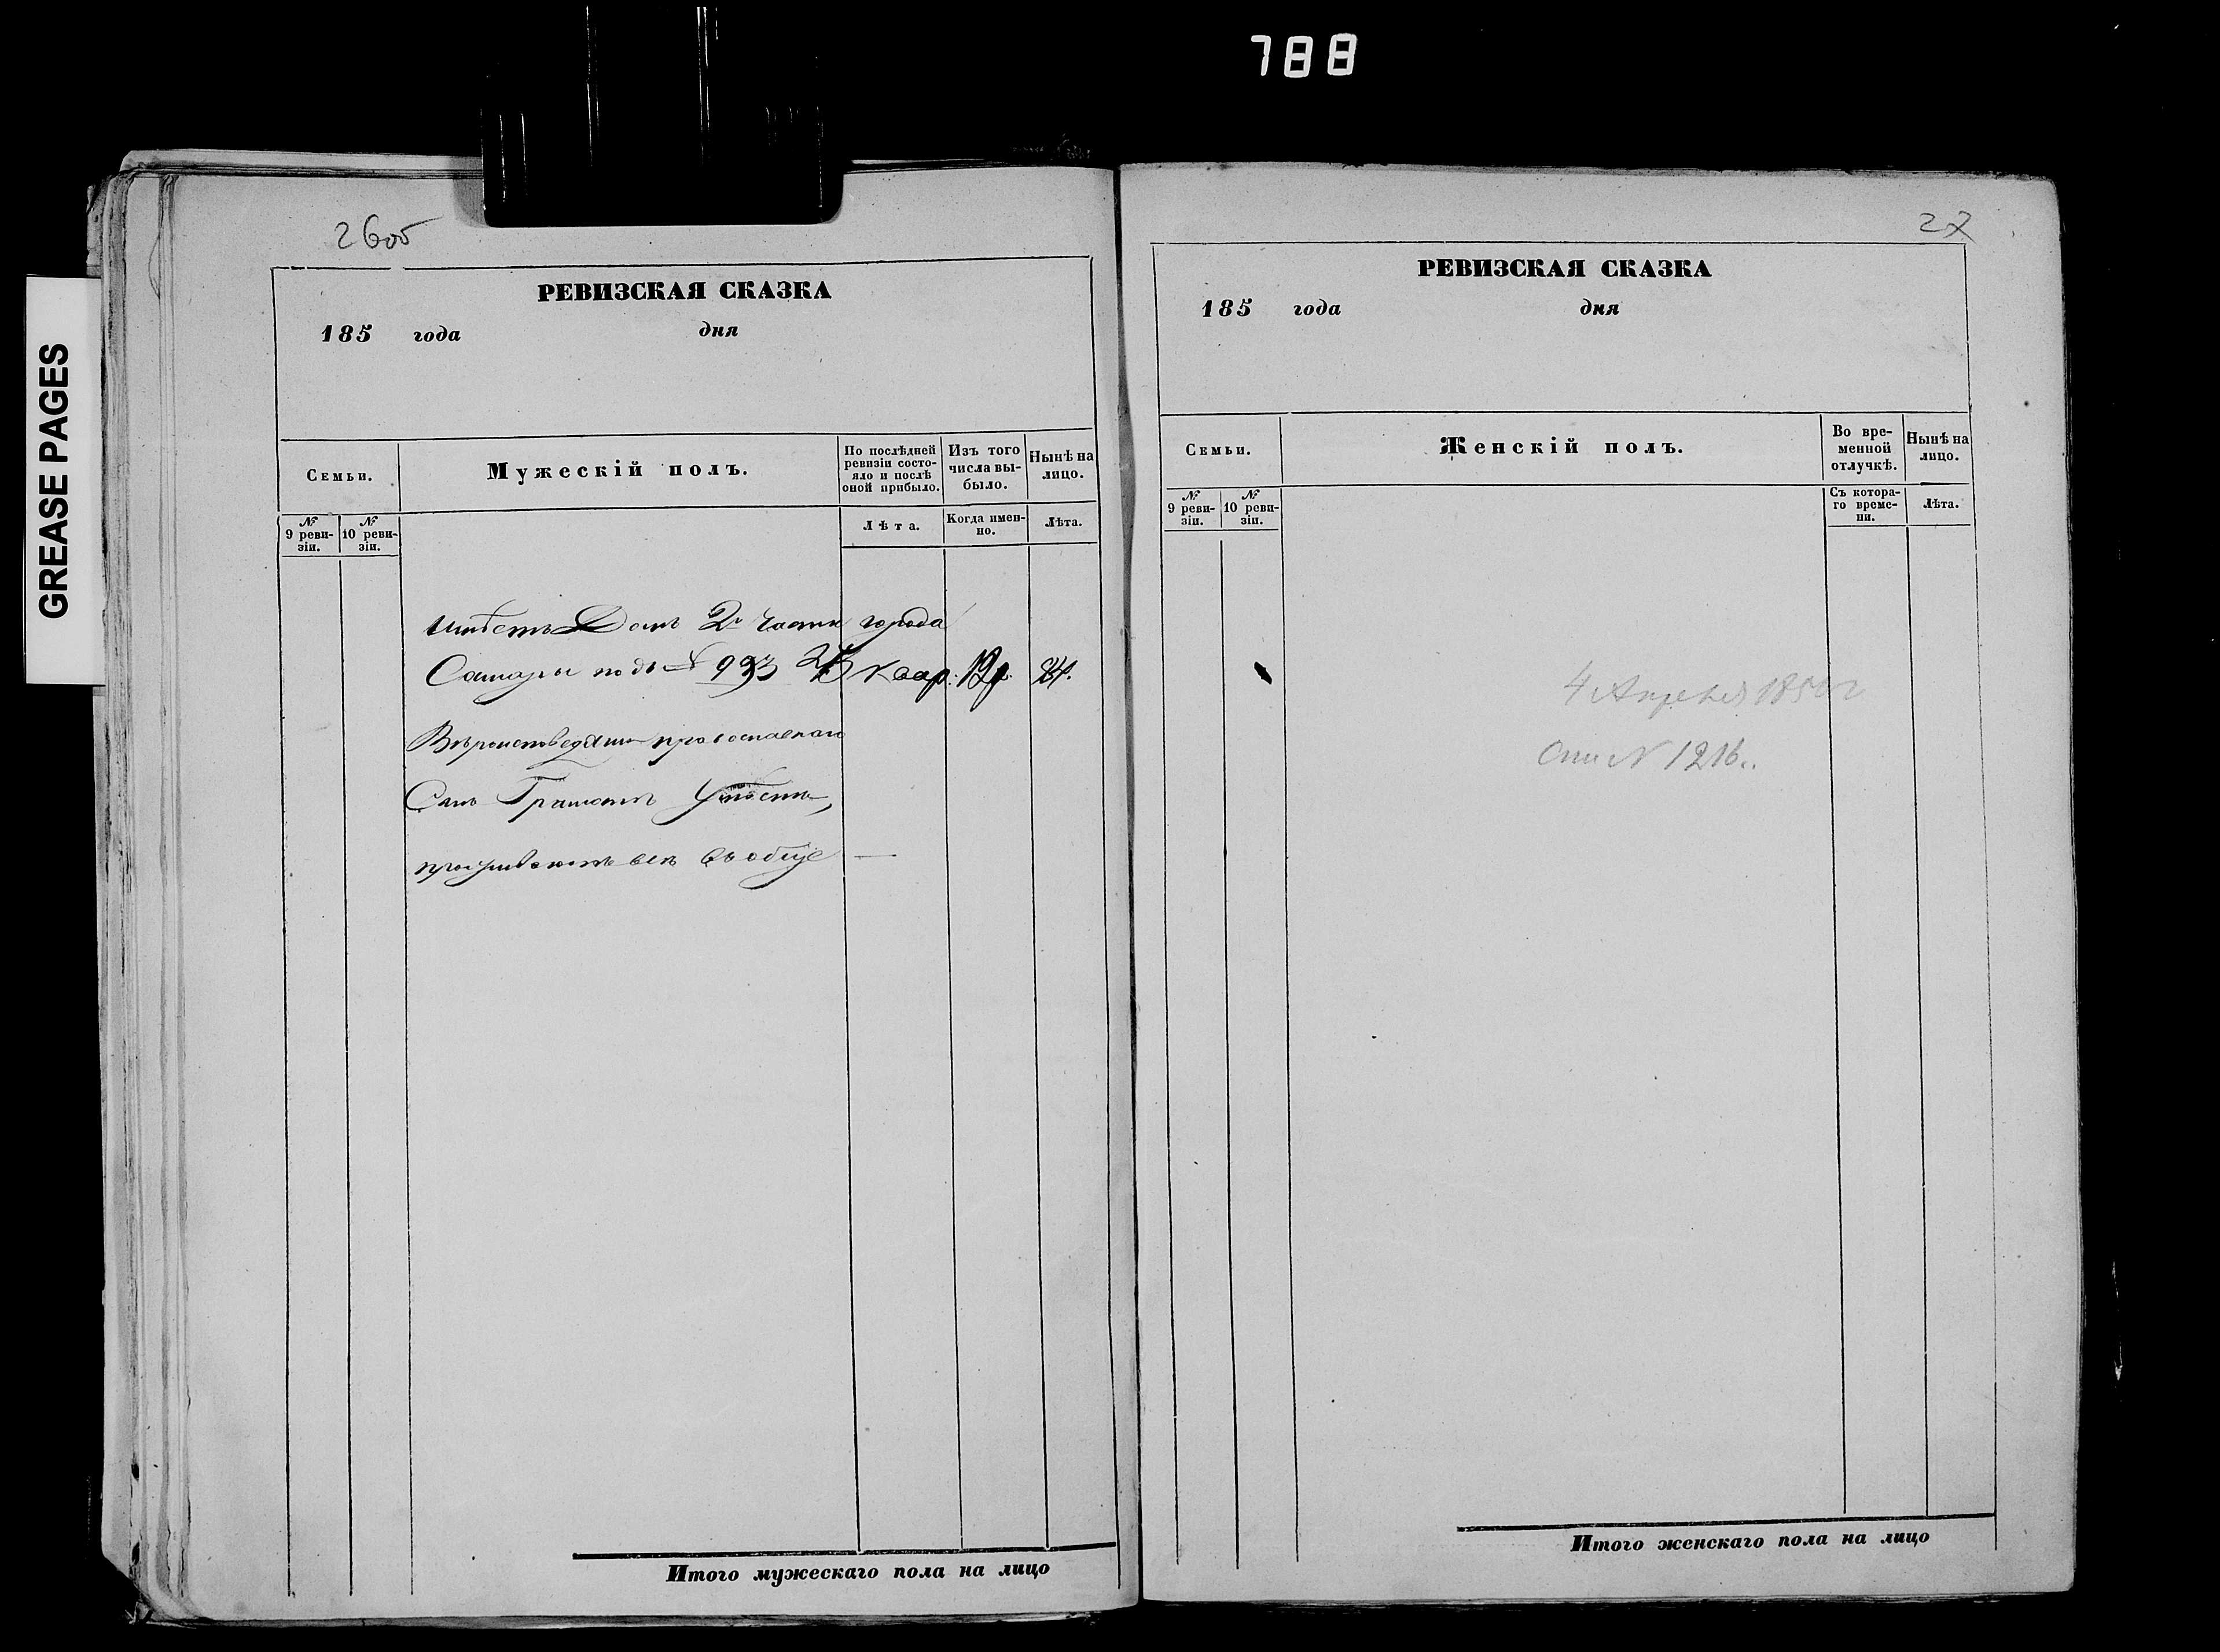 788
GREASE PAGES
26об
РЕВИЗСКАЯ СКАЗКА
185 года дня
Семьи.
Мужескій полъ.
По послѣдней ревизіи состояло и послѣ оной прибыло.
Изъ того числа выбыло.
Нынѣ на лицо.
№ 9 ревизіи.
№ 10 ревизіи.
Лѣта.
Когда именно.
Лѣта.
имѣетъ Домъ 2й части города
Самары подъ № 993 квар.
Вѣроисповеданія православнаго
Самъ Грамотъ умѣетъ,
проживаютъ всѣ въ обще —
Итого мужескаго пола на лицо
27
РЕВИЗСКАЯ СКАЗКА
185 года дня
Семьи.
Женскій полъ.
Во временной отлучкѣ.
Нынѣ на лицо.
№ 9 ревизіи.
№ 10 ревизіи.
Съ котораго времени.
Лѣта.
4 Апреля 185
№ 1216.
Итого женскаго пола на лицо